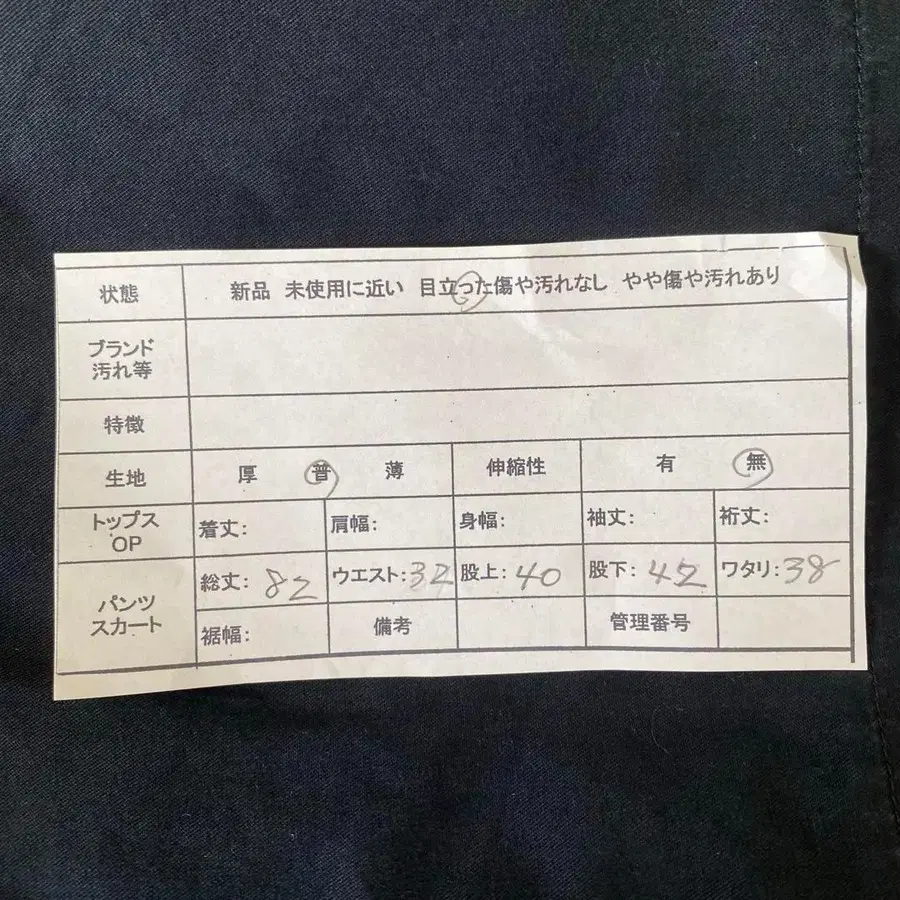 状態 新品 未使用に近い 目立った傷や汚れなし やや傷や汚れあり
ブランド
汚れ等
特徴
生地 厚 普 薄 伸縮性 有 無
トップス
OP
着丈: 肩幅: 身幅: 袖丈: 裄丈:
パンツ
スカート
総丈: 82 ウエスト: 32 股上: 40 股下: 42 ワタリ: 38
裾幅: 備考 管理番号